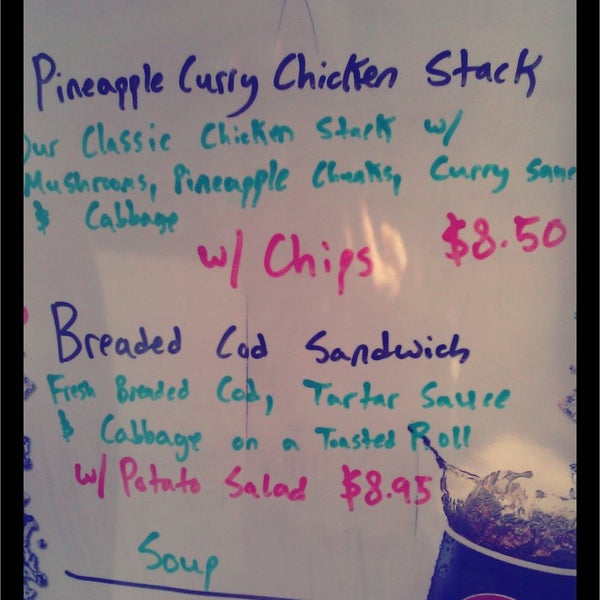 Pineapple Curry Chicken Stack
Our Classic Chicken Stack w/
Mushrooms, Pineapple Chunks, Curry Sauce
& Cabbage
w/ Chips $8.50
Breaded Cod Sandwich
Fresh Breaded Cod, Tartar Sauce
& Cabbage on a Toasted Roll
w/ Potato Salad $8.95
Soup